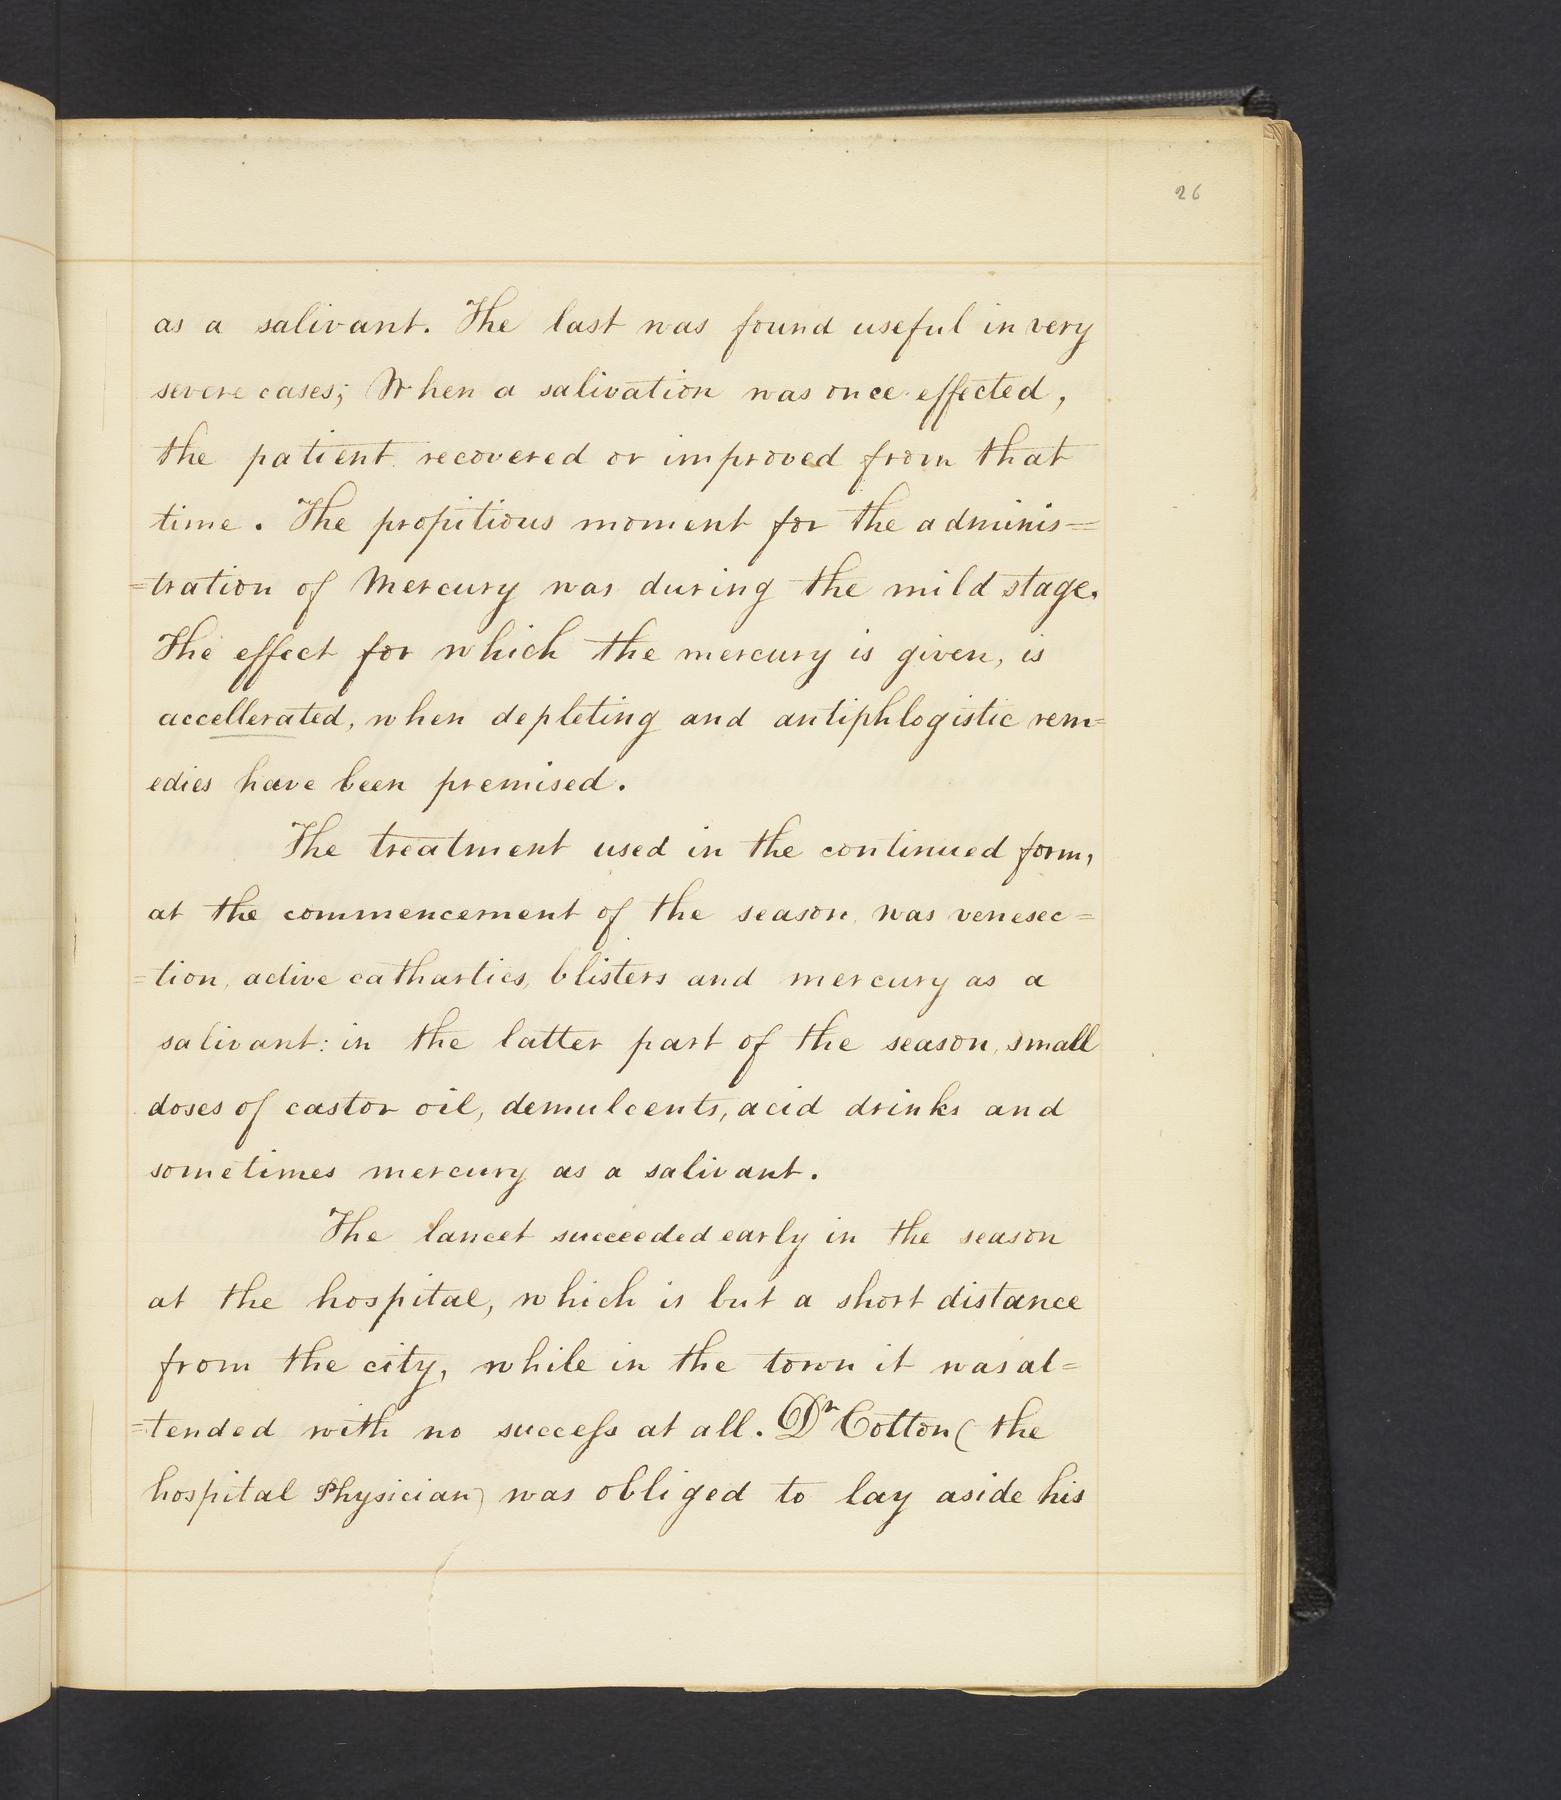 26
as a salivant. The last was found useful in very
severe cases; When a salivation was once effected,
the patient recovered or improved from that
time. The propitious moment for the adminis=
=tration of Mercury was during the mild stage.
The effect for which the mercury is given, is
accellerated, when depleting and antiphlogistic rem=
edies have been premised.
The treatment used in the continued form,
at the commencement of the season, was venesec=
=tion, active cathartics, blisters and mercury as a
salivant: in the latter part of the season, small
doses of castor oil, demulcents, acid drinks and
sometimes mercury as a salivant.
The lancet succeeded early in the season
at the hospital, which is but a short distance
from the city, while in the town it was at=
=tended with no success at all. Dr Cotton (the
hospital Physician) was obliged to lay aside his